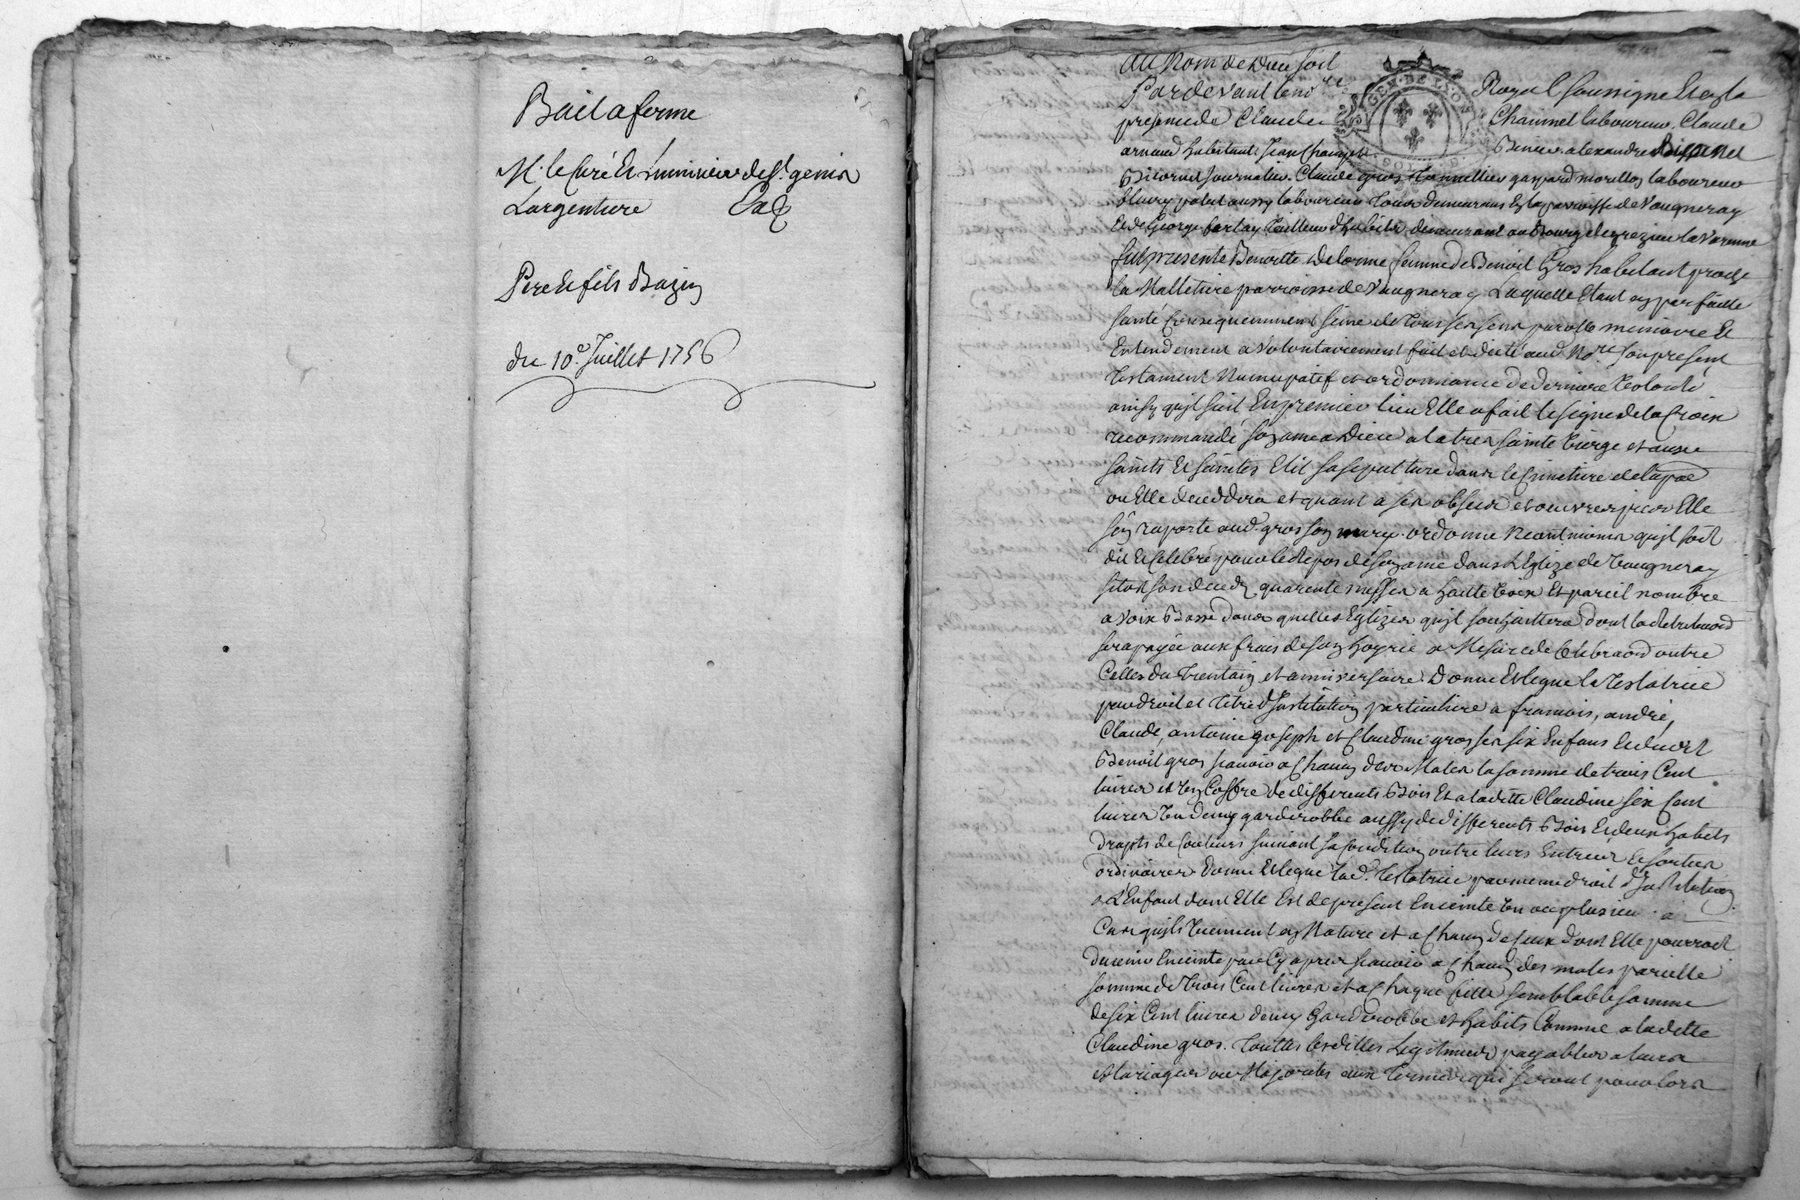 Bail a ferme
M. le Curé et luminier de St. genis
Largentiere
Pere et fils Bazin
du 10e. Juillet 1756
Au Nom de Dieu soit
Pardevant le no.re Royal soussigné Et en la
presence de Claude Chainnel laboureur, Claude
arnaud habitant, Jean
journalier, Claude gros tonnellier gaspard morellon laboureur
fleury aussy laboureur tous demeurans En la parroisse de Vaugneray
Et de George farlay tailleur d'habits demeurant au Bourg de grezieu la Varenne
fut presente Benoitte Delorme femme de Benoit Gros habitant proche
la Malletiere parroisse de Vaugneray Laquelle Etant en parfaitte
santé Consequemment saine de tous ses sens parolle memoire Et
Entendement a volontairement fait et dicté aud. No.re son present
Testament Nuncupatif et ordonnance de derniere Volonté
ainsy qu'il suit En premier lieu Elle a fait le signe de la Croix
recommandé son ame a Dieu a la tres sainte Vierge et aux
saints Et saintes Elit sa sepulture dans le Cimetiere de la pse
ou Elle deceddera et quant a ses obseques et oeuvres pies Elle
s'en raporte aud. gros son mary. ordonne Neantmoins qu'il soit
dit Et Celebré pour le Repos de son ame dans l'Eglize de Vaugneray
sitot son deced quarente messes a haute Voix Et pareil nombre
a voix Basse dans quelles Eglizes qu'il souhaittera dont la retribuon
sera payée aux frais de son hoyrie a Mesure de Celebraon outre
Celles du trentain et anniversaire. Donne Et legue la Testatrice
par droit et titre d'Institution particuliere a francois, andré,
Claude, antoine Joseph et Claudine gros ses six Enfans Et dudit
Benoit gros scavoir a Chacun des Males la somme de trois Cent
livres et un Coffre de differents Bois Et a laditte Claudine six Cent
livres Un demy garderobbe aussy de differents Bois Et deux habits
drapts de Couleurs suivant sa Condition outre leurs Entrées Et sorties
ordinaires Donne Et legue lad. Testatrice par meme droit d'Institution
a l'Enfant dont Elle Est de present Enceinte un ou plusieurs
Cas qu'ils viennent En Nature et a Chacun de Ceux dont Elle pourroit
devenir Enceinte par Cy apres scavoir a Chacun des males pareille
somme de trois Cent livres et a Chaque fille semblable somme
de six Cent livres demy Garderobbe et habits Comme a laditte
Claudine gros. Touttes lesdittes Legitimes payables a leurs
Mariages ou Majorités aux termes qui seront pour lors